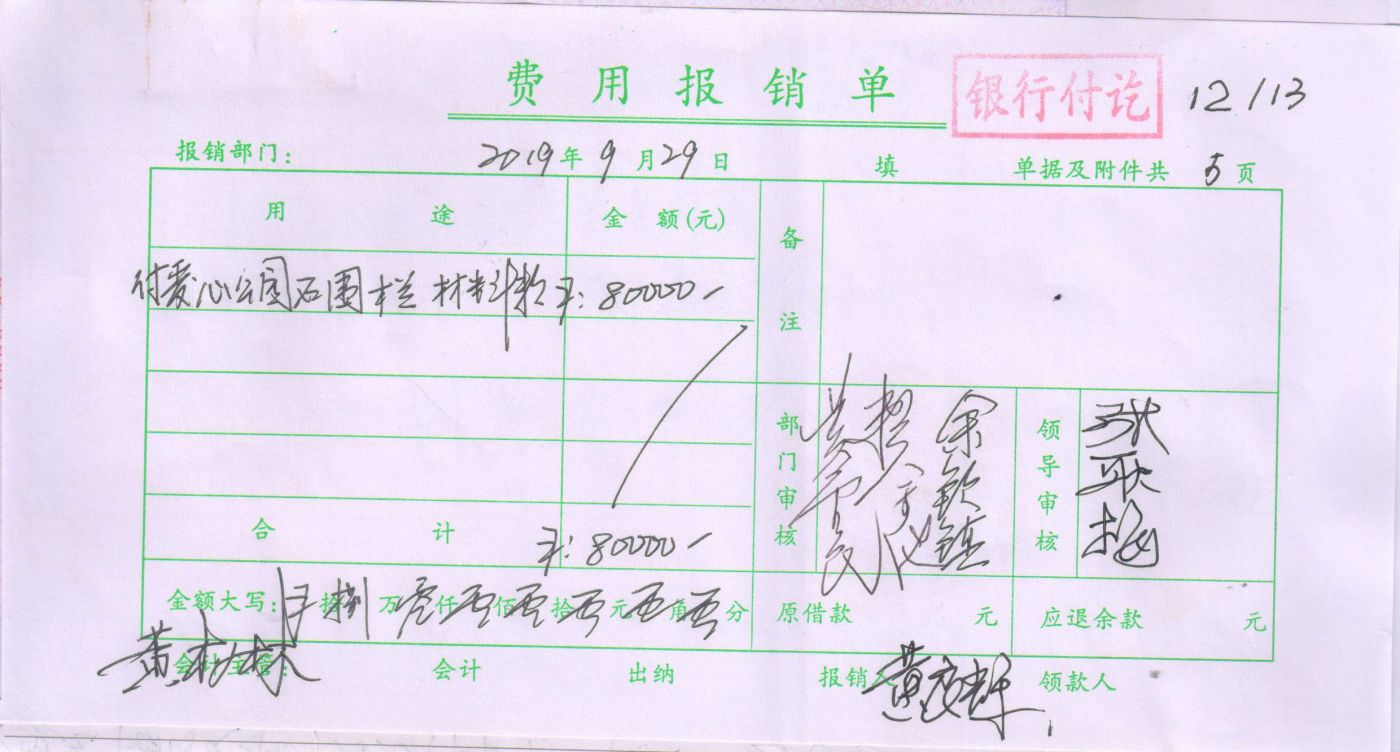 费用报销单 银行付讫 12/13
报销部门: 2019年9月29日 填 单据及附件共 5 页
用途 金额(元) 备注
付爱心公园石围栏材料款 80000
合计 80000
部门审核 余钦镇 领导审核
金额大写: 拾捌万零仟零佰零拾零元零角零分 原借款 元 应退余款 元
会计主管: 会计 出纳 报销人 领款人